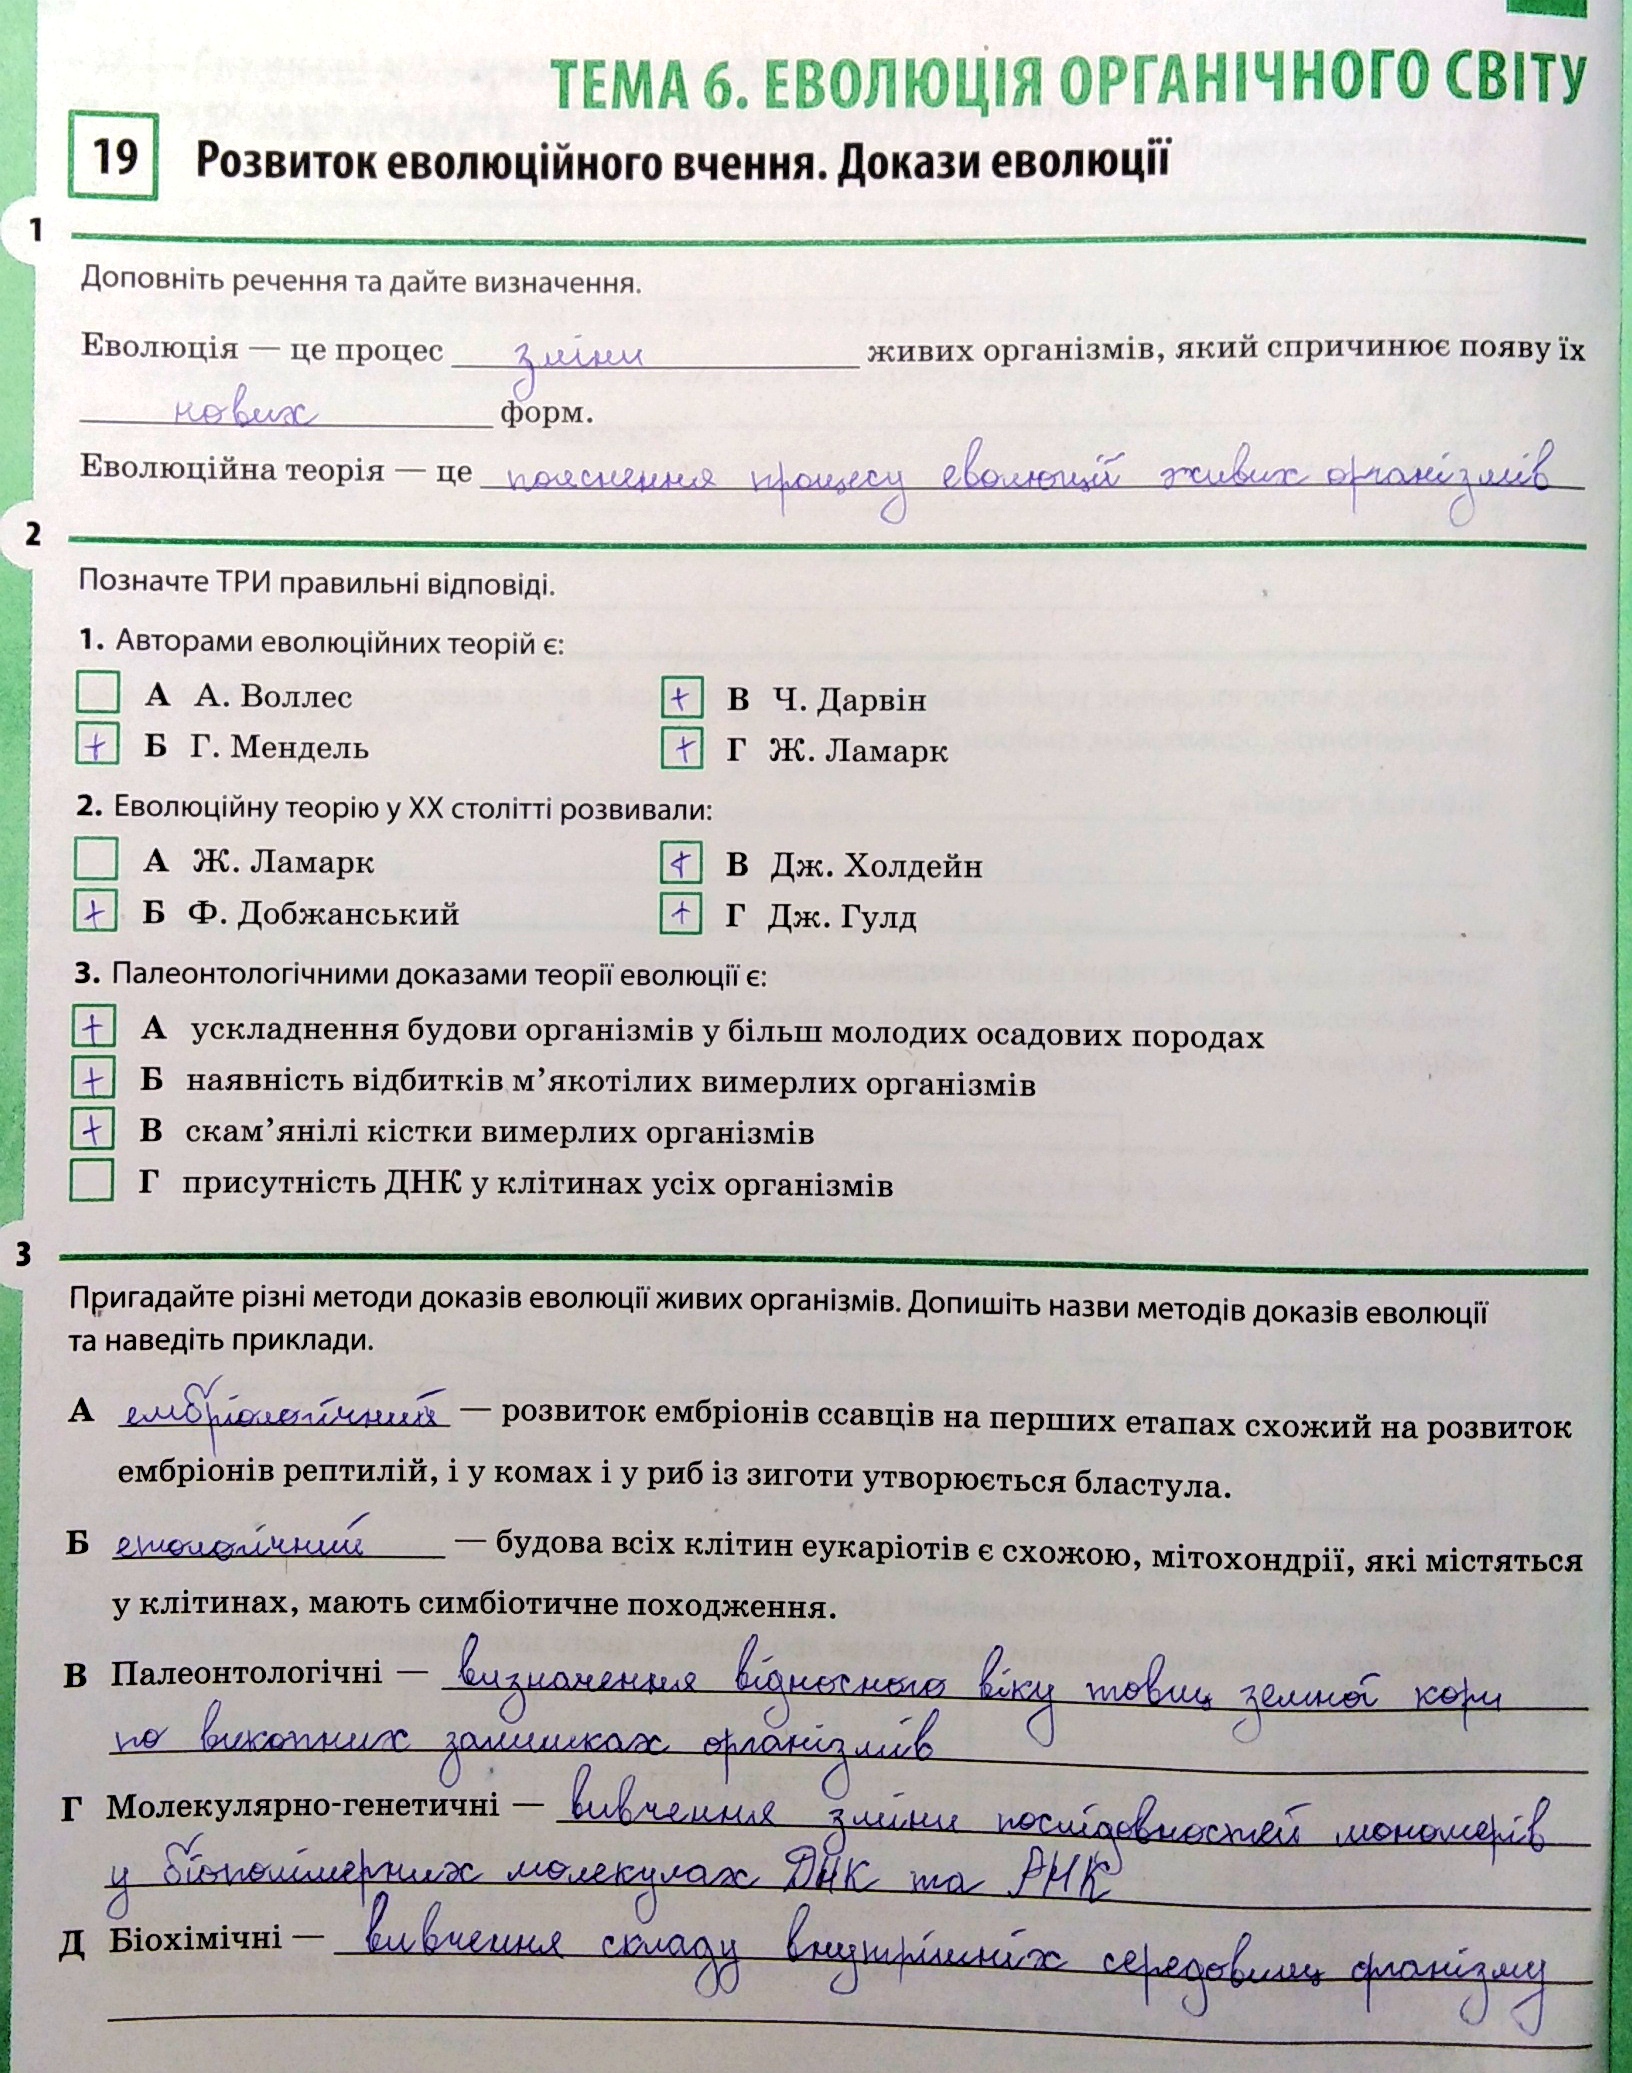 ТЕМА 6. ЕВОЛЮЦІЯ ОРГАНІЧНОГО СВІТУ
19 Розвиток еволюційного вчення. Докази еволюції
1
Доповніть речення та дайте визначення.
Еволюція — це процес зміни живих організмів, який спричинює появу їх
нових форм.
Еволюційна теорія — це пояснення процесу еволюції живих організмів
2
Позначте ТРИ правильні відповіді.
1. Авторами еволюційних теорій є:
А А. Воллес + В Ч. Дарвін
+ Б Г. Мендель + Г Ж. Ламарк
2. Еволюційну теорію у XX столітті розвивали:
А Ж. Ламарк + В Дж. Холдейн
+ Б Ф. Добжанський + Г Дж. Гулд
3. Палеонтологічними доказами теорії еволюції є:
+ А ускладнення будови організмів у більш молодих осадових породах
+ Б наявність відбитків м’якотілих вимерлих організмів
+ В скам’янілі кістки вимерлих організмів
Г присутність ДНК у клітинах усіх організмів
3
Пригадайте різні методи доказів еволюції живих організмів. Допишіть назви методів доказів еволюції
та наведіть приклади.
А ембріологічний — розвиток ембріонів ссавців на перших етапах схожий на розвиток
ембріонів рептилій, і у комах і у риб із зиготи утворюється бластула.
Б етологічний — будова всіх клітин еукаріотів є схожою, мітохондрії, які містяться
у клітинах, мають симбіотичне походження.
В Палеонтологічні — визначення відносного віку товщ земної кори
по викопних залишках організмів
Г Молекулярно-генетичні — вивчення зміни послідовностей мономерів
у біополімерних молекулах ДНК та РНК
Д Біохімічні — вивчення складу внутрішніх середовищ організму